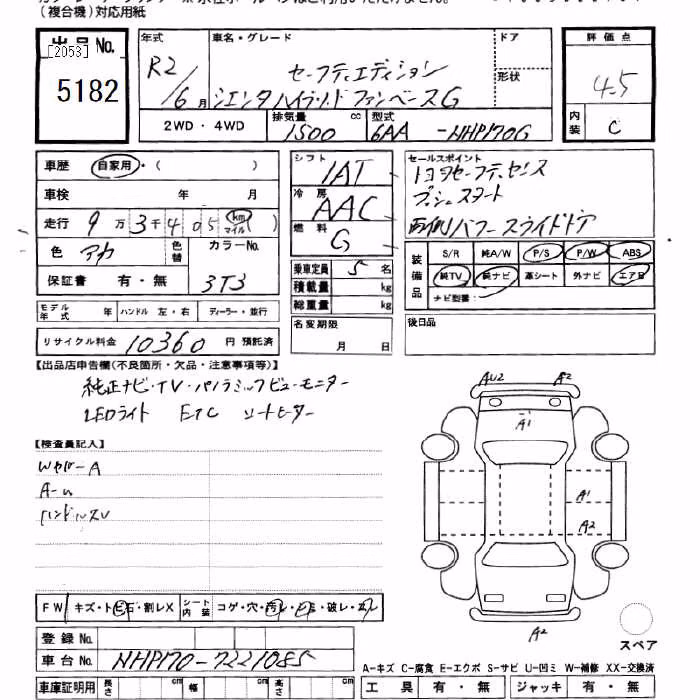 (複合機)対応用紙
出品 No.
[2053]
5182
年式
R2/6月
車名・グレード
セーフティエディション
シエンタハイブリッド ファンベースG
ドア
形状
評価点
4.5
内装
C
2WD・4WD
排気量 cc
1500
型式
6AA-NHP170G
車歴 自家用・( )
車検 年 月
走行 9万3千405 km マイル( )
色 アカ 色替
カラーNo.
3T3
保証書 有・無
モデル年式 年 ハンドル 左・右 ディーラー・並行
リサイクル料金 10360 円 預託済
シフト
IAT
冷房
AAC
燃料
G
乗車定員 5 名
積載量 kg
総重量 kg
名変期限
月 日
セールスポイント
トヨタセーフティセンス
プッシュスタート
両側パワースライドドア
装備品
S/R 純A/W P/S P/W ABS
純TV 純ナビ 革シート 外ナビ エアB
ナビ型番:
後日品
【出品店申告欄(不良箇所・欠品・注意事項等)】
純正ナビ・TV・パノラミックビューモニター
LEDライト ETC シートヒーター
【検査員記入】
Wカバー A
ハンドルスレ
AU2 A2
A1
A1
A2
A2
スペア
FW キズ・トビ石・割レX
シート内装 コゲ・穴・汚レ・破レ・スレ
登録 No.
車台 No. NHP170-7221085
車庫証明用 長さ cm 幅 cm 高さ cm
A-キズ C-腐食 E-エクボ S-サビ U-凹ミ W-補修 XX-交換済
工具 有・無 ジャッキ 有・無